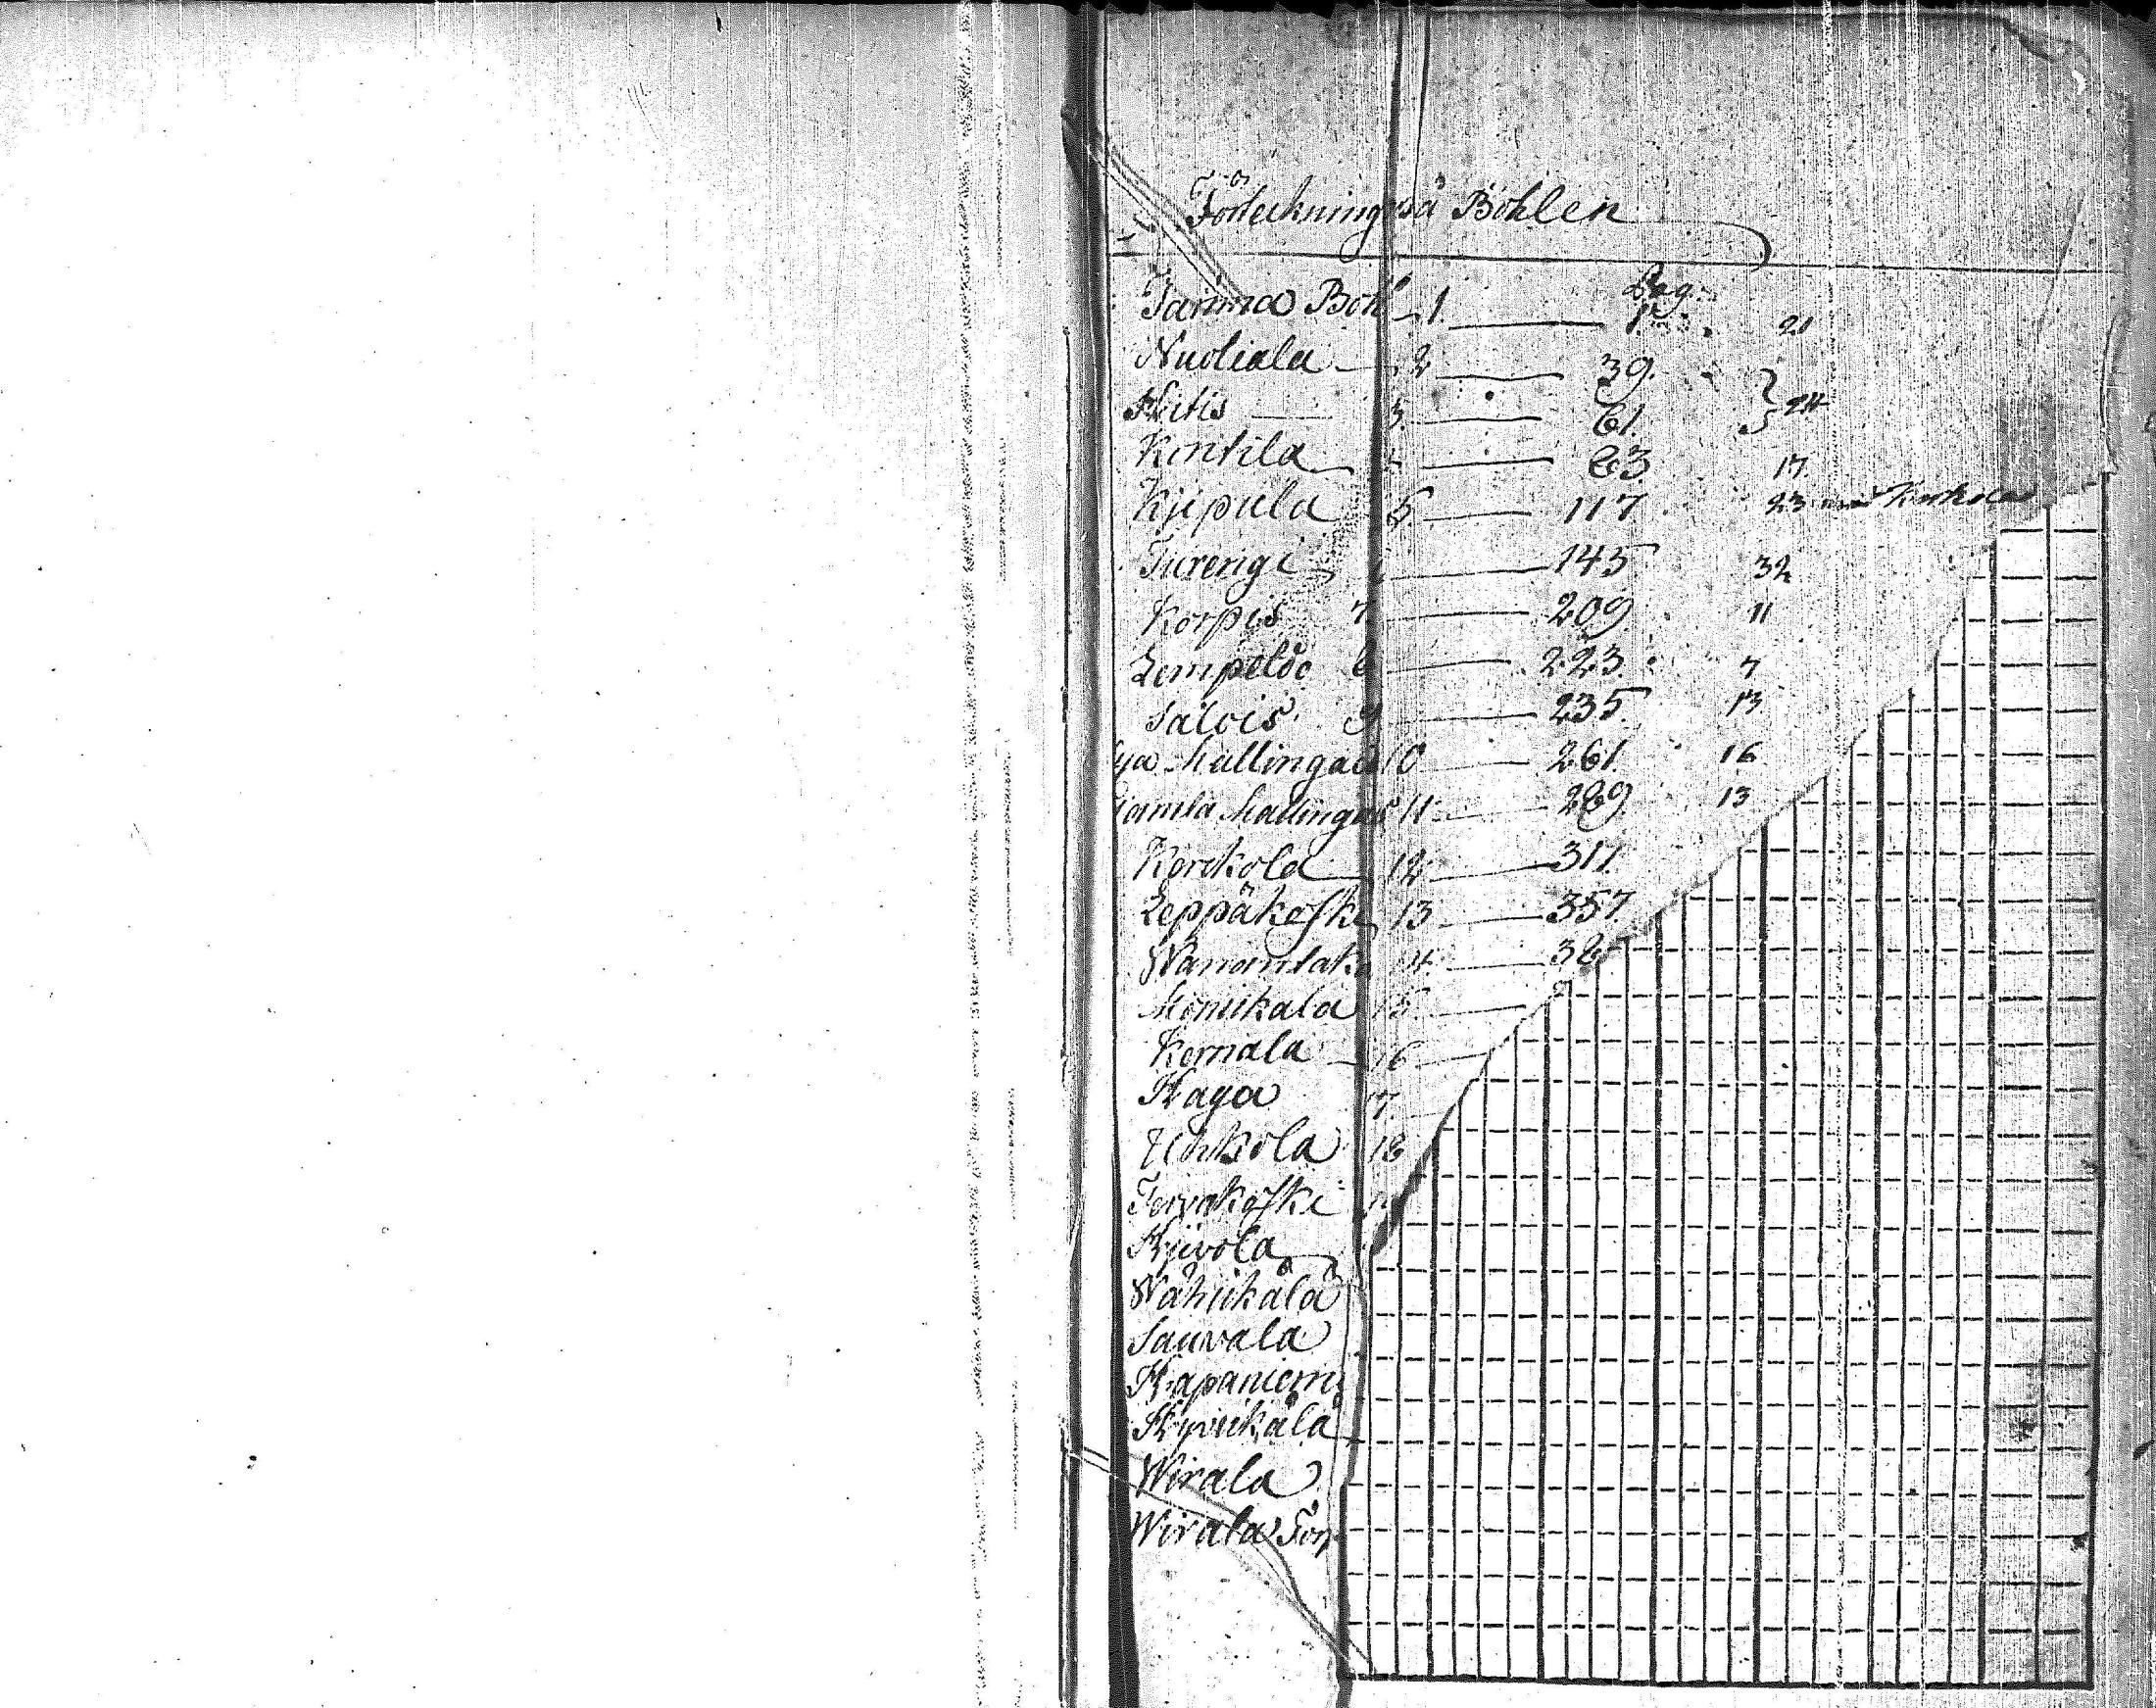 Förteckning på Böhlen
Pag.
Tarinma Böhl 1. 1. 21
Nuoliala 2 39.
Hiitis 3. 61. 24
Kintila 83 17
Kiipula 5 117 23
Turengi 145 32
Korpis 7 209 11
Lempeldc 8 223. 7
Salois 9 235. 13
Nya Mallingais 10 261. 16
Gamla Mallingais 11 289. 13
Kerckola 12 317.
Leppäkoski 13 357.
Wanantaka 14 38
Monikala 15
Kernala 16
Haga 17.
Uhkola 18
Tervakoski
Hyvola
Wähikälä
Sauvala
Hapaniemi
Hyvikälä
Wirala
Wirala Tor